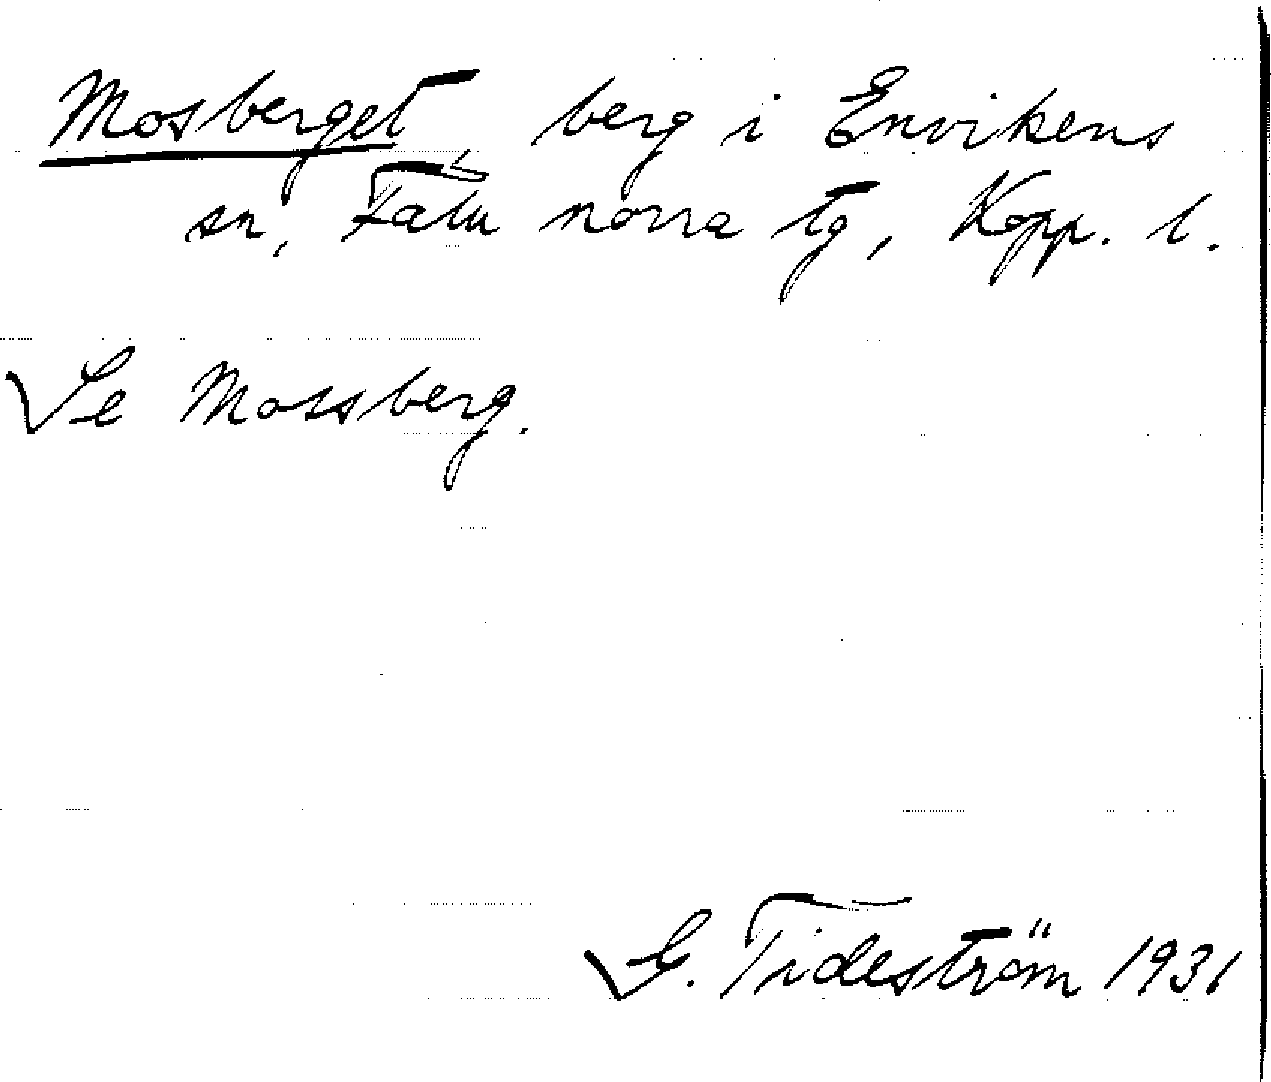 Mosberget berg i Envikens
sn, Falu norra tg, Kopp. l.
Se Mossberg.
G. Tideström 1931